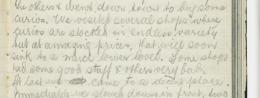 the others & went down town to buy some
curios. We visited several shops where
curios are stocked in endless variety
but at amazing prices, that will soon
sink to a much lower level. Some shops
had some good stuff & others very bah.
At last we came to a place
Immediately we slowed down in front, two